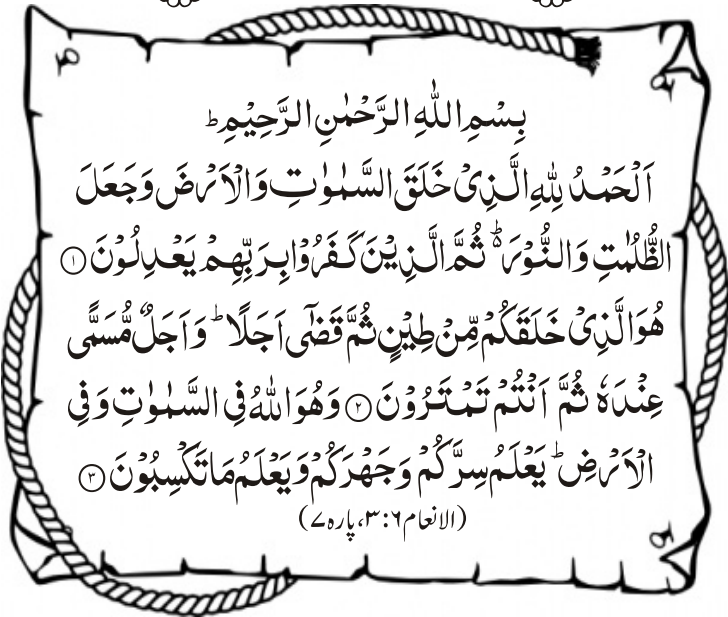 بِسْمِ اللّٰهِ الرَّحْمٰنِ الرَّحِیْمِ ؕ
اَلْحَمْدُ لِلّٰهِ الَّذِیْ خَلَقَ السَّمٰوٰتِ وَالْاَرْضَ وَجَعَلَ
الظُّلُمٰتِ وَالنُّوْرَ ۬ؕ ثُمَّ الَّذِیْنَ كَفَرُوْا بِرَبِّهِمْ یَعْدِلُوْنَ ①
هُوَ الَّذِیْ خَلَقَكُمْ مِّنْ طِیْنٍ ثُمَّ قَضٰۤی اَجَلًا ؕ وَ اَجَلٌ مُّسَمًّی
عِنْدَهٗ ثُمَّ اَنْتُمْ تَمْتَرُوْنَ ② وَهُوَ اللّٰهُ فِی السَّمٰوٰتِ وَ فِی
الْاَرْضِ ؕ یَعْلَمُ سِرَّكُمْ وَجَهْرَكُمْ وَ یَعْلَمُ مَا تَكْسِبُوْنَ ③
(الانعام ۶:۳، پارہ ۷)